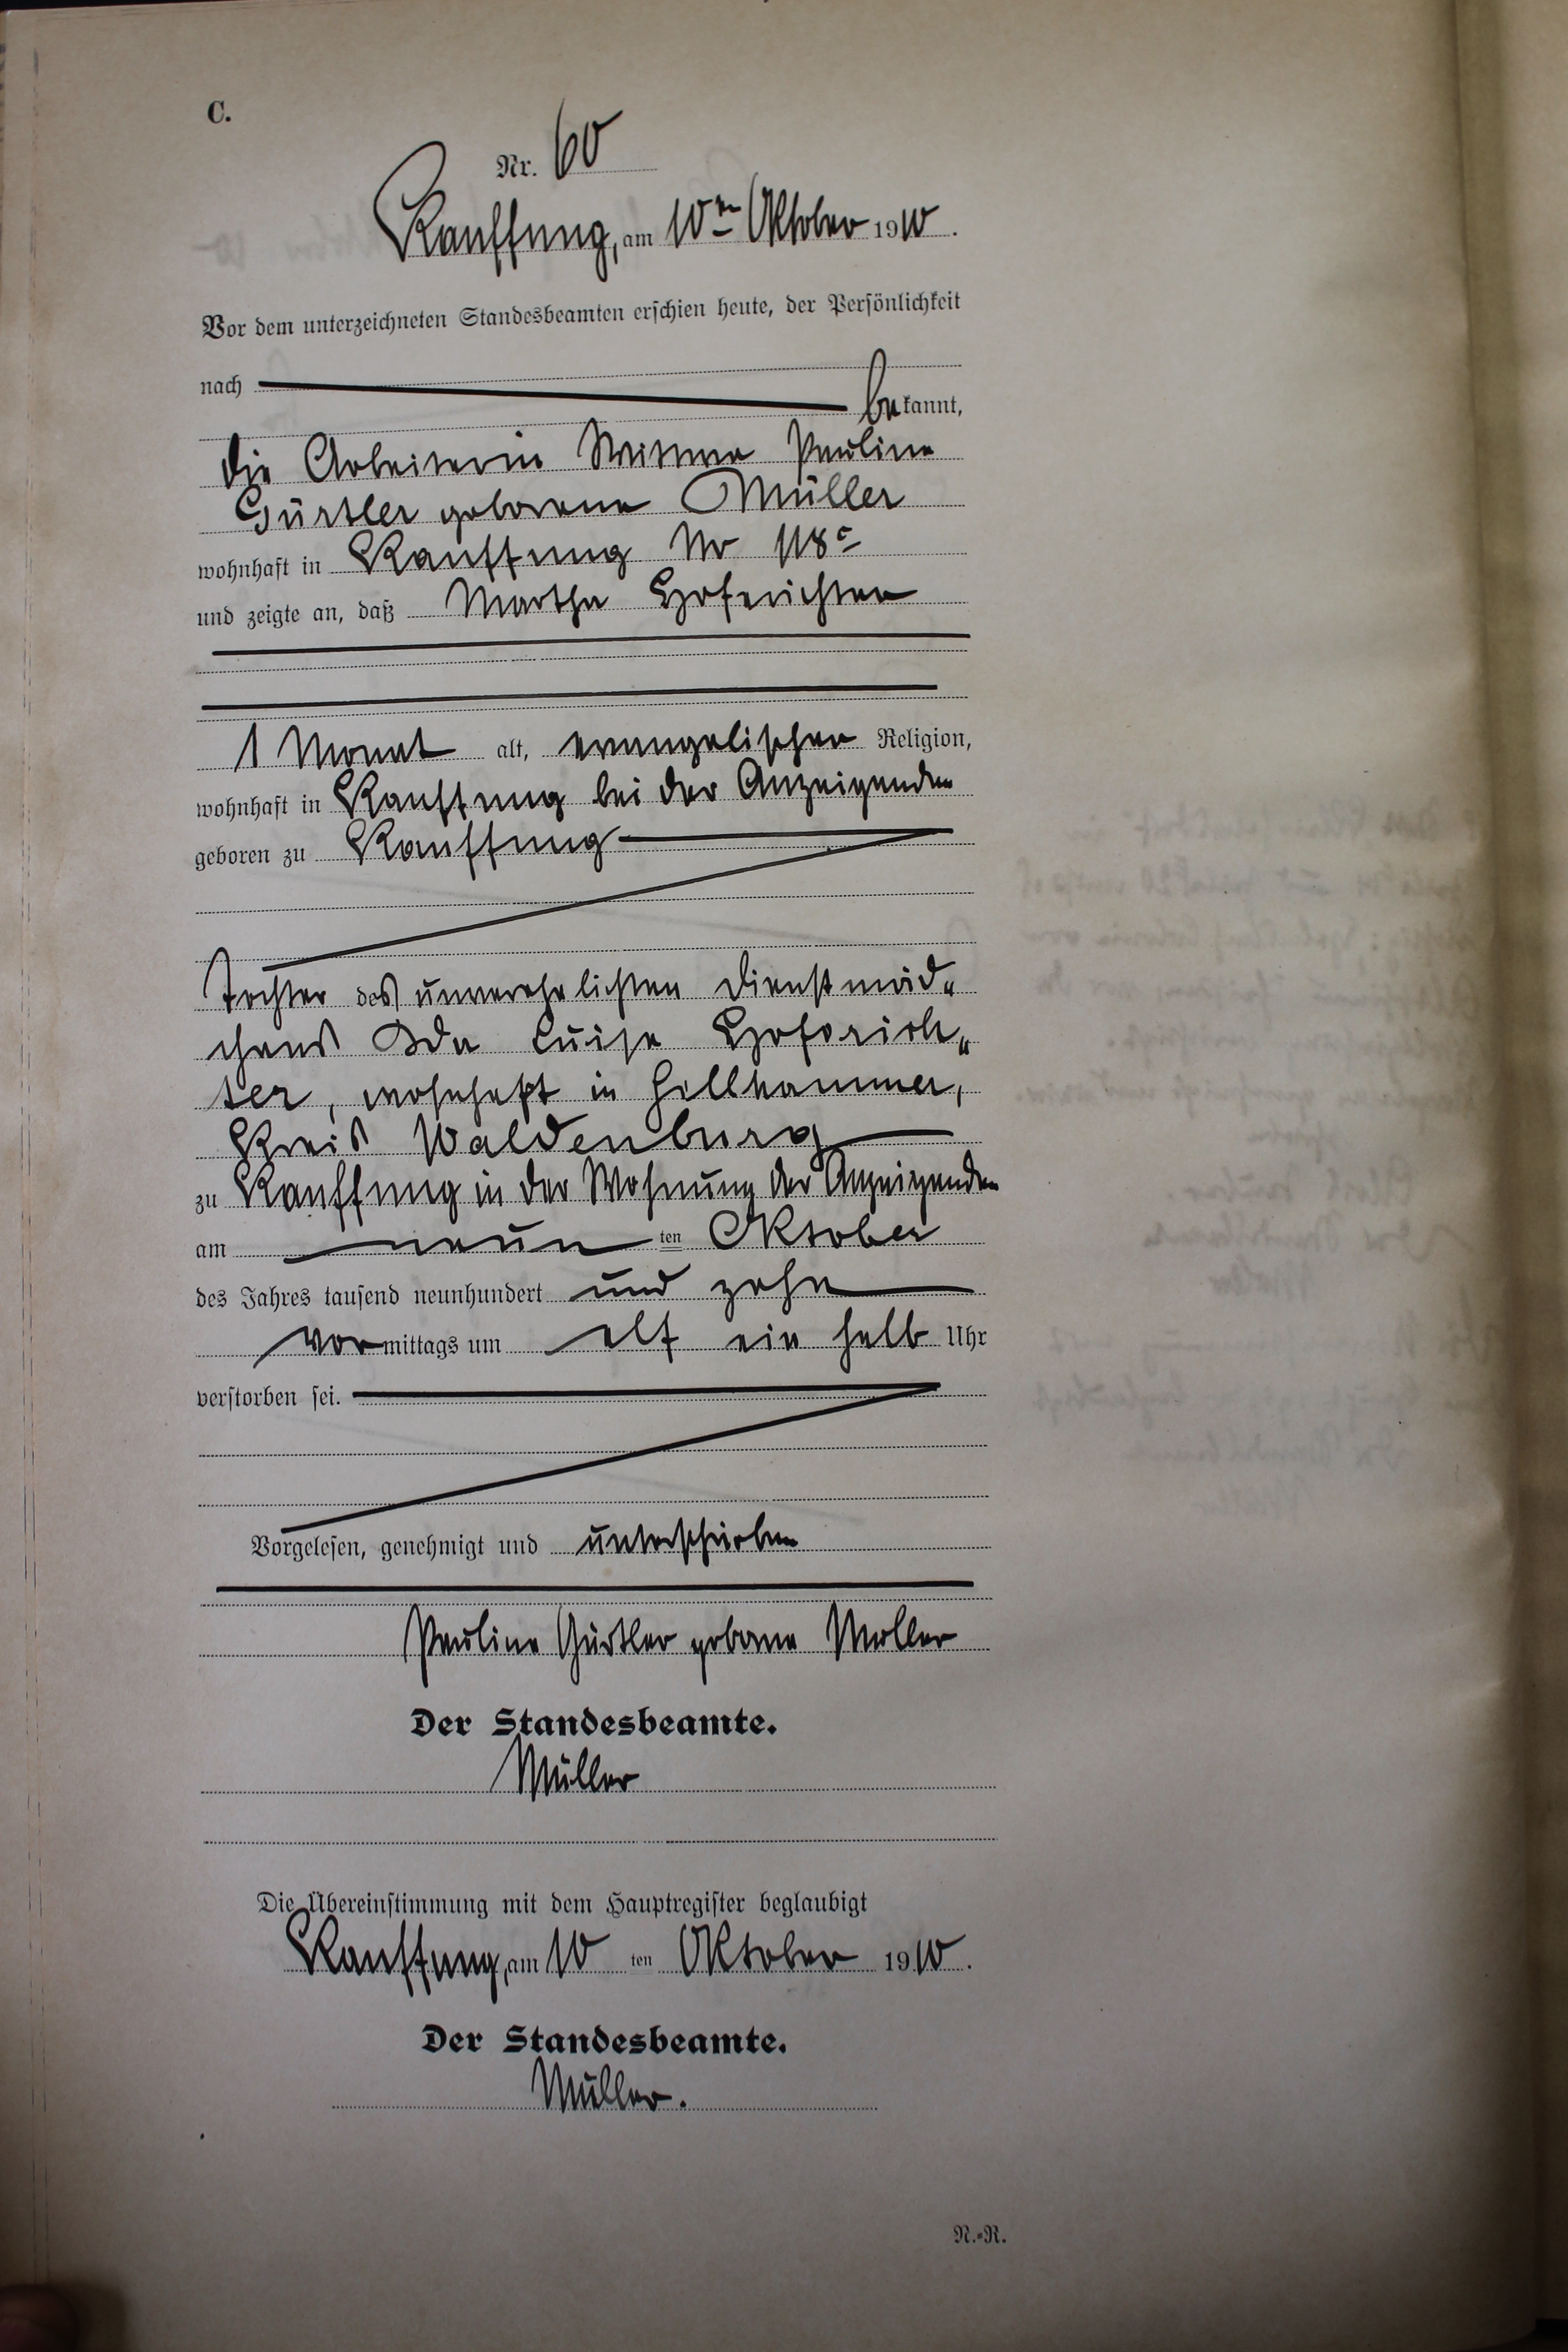 C.
Nr. 60
Kauffung, am 10ten Oktober 1910.
Vor dem unterzeichneten Standesbeamten erschien heute, der Persönlichkeit
nach
bekannt,
die Arbeiterin Witwe Pauline
Gürtler geborene Müller
wohnhaft in Kauffung Nr 118c
und zeigte an, daß Martha Hoferichter
1 Monat alt, evangelischer Religion,
wohnhaft in Kauffung bei der Anzeigenden
geboren zu Kauffung
Tochter des unverehelichten Dienstmäd„
chens Ida Luise Hoferich„
ter, wohnhaft in Hellhammer,
Kreis Waldenburg
zu Kauffung in der Wohnung der Anzeigenden
am neun ten Oktober
des Jahres tausend neunhundert und zehn
vormittags um elf ein halb Uhr
verstorben sei.
Vorgelesen, genehmigt und unterschrieben
Pauline Gürtler geborene Müller
Der Standesbeamte.
Müller
Die Übereinstimmung mit dem Hauptregister beglaubigt
Kauffung, am 10 ten Oktober 1910.
Der Standesbeamte.
Müller.
N.-R.